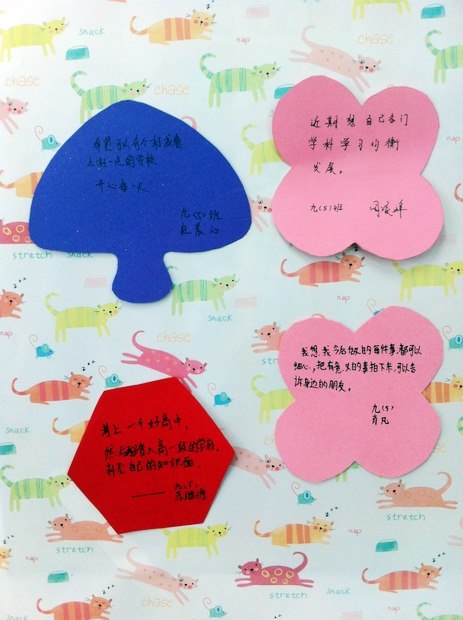 希望可以有个好成绩
上好一点的学校
开心每一天
九(5)班
近期想自己各门
学科学习均衡
发展。
九(5)班
我想,我今后做的每件事,都可以
细心,把有意义的事拍下来,可以告
诉身边的朋友。
九(5)
肖凡
考上一个好高中,
然后进入高一级的学府,
补充自己的知识面.
九(5)
chase
snack
nap
stretch